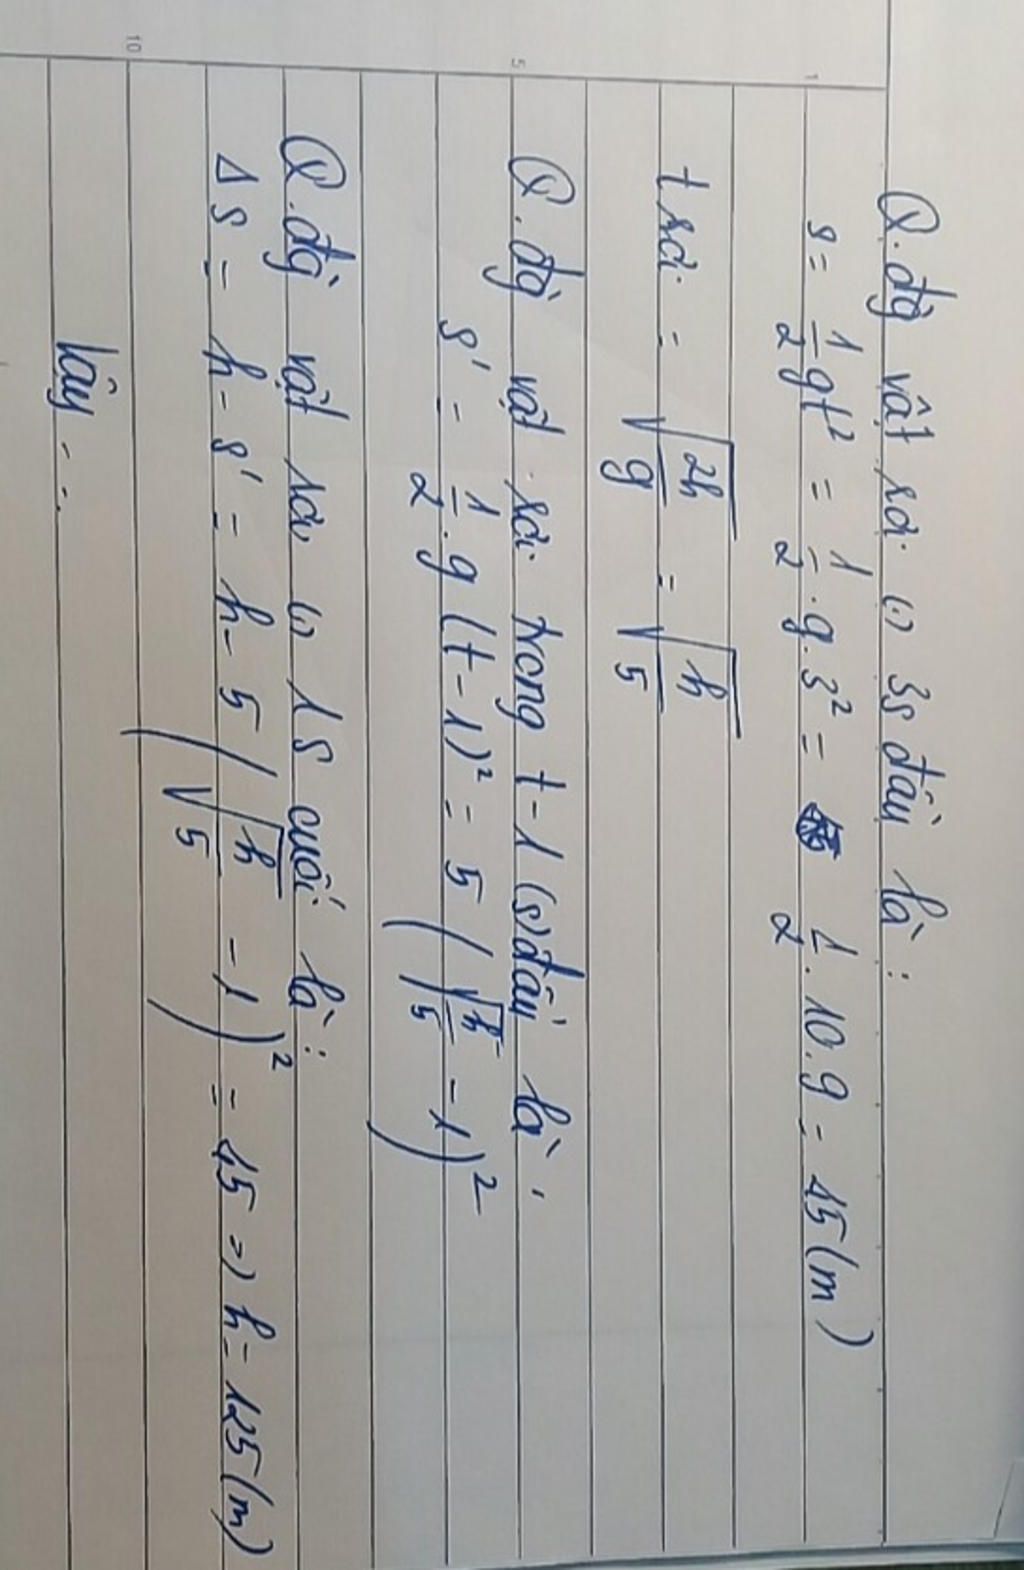 Q.đg vật rơi (.) 3s đầu là :
s = 1/2 gt² = 1/2 . g . 3² = 1/2 . 10 . 9 = 45 (m)
t rơi = √(2h/g) = √(h/5)
Q.đg vật rơi trong t - 1 (s) đầu là :
s' = 1/2 . g (t - 1)² = 5 (√(h/5) - 1)²
Q.đg vật rơi (.) 1s cuối là :
Δs = h - s' = h - 5 (√(h/5) - 1)² = 45 => h = 125 (m)
Vậy ...
1
5
10